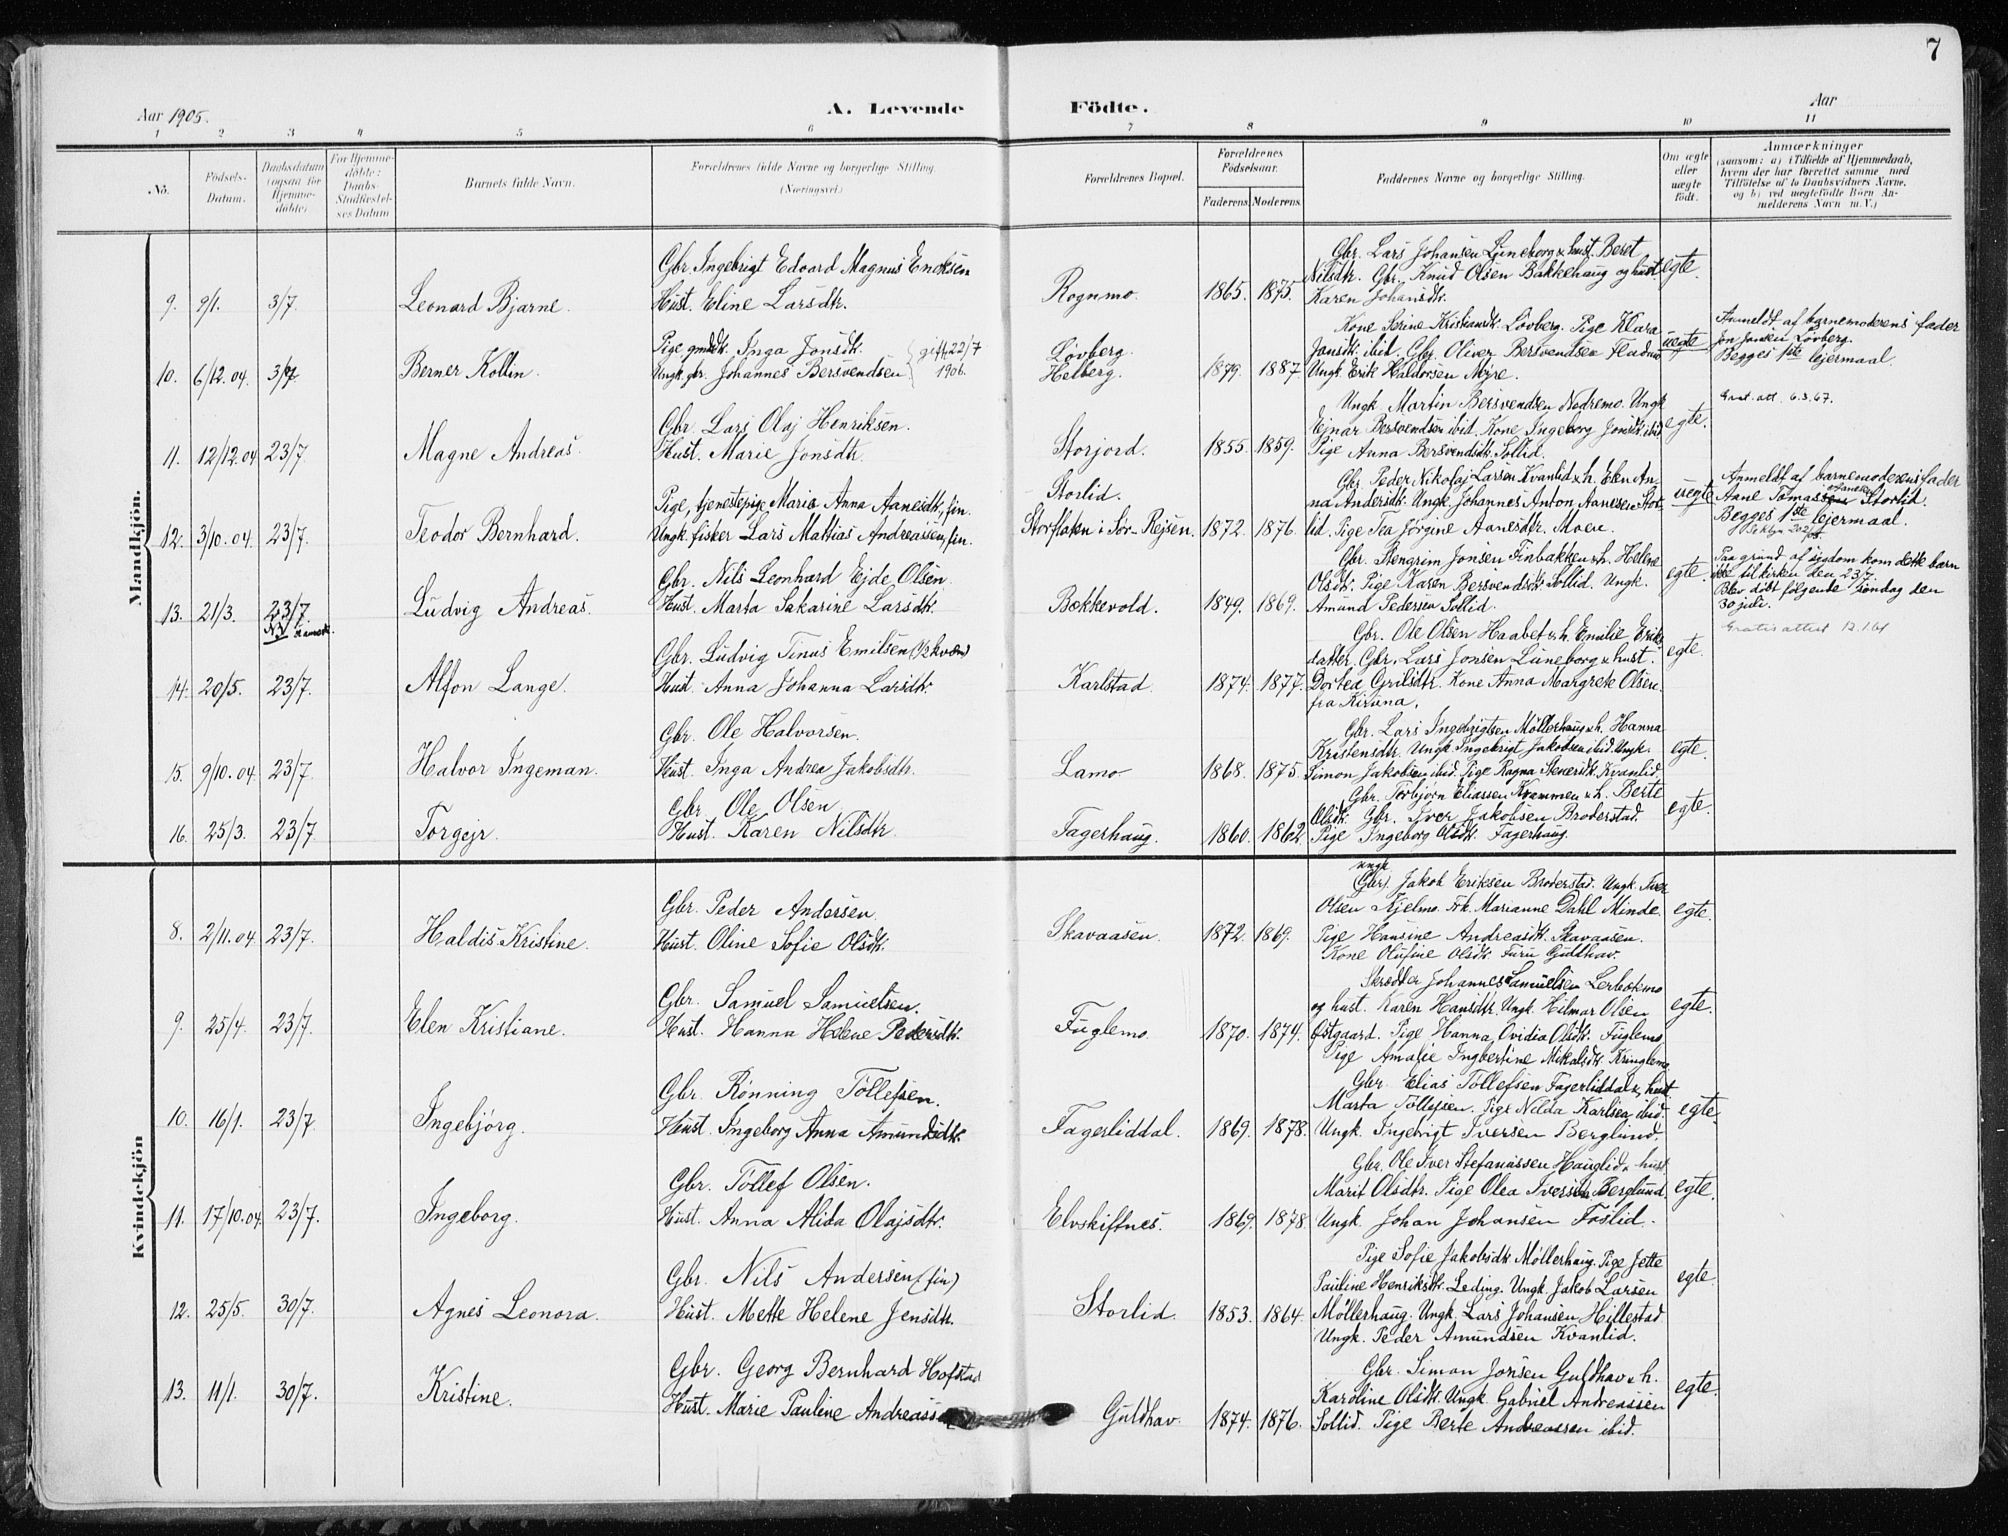 7
Aar 1905.
A. Levende Födte.
Aar
1 2 3 4 5 6 7 8 9 10 11
No.
Födsels-
Datum.
Daabsdatum
(ogsaa for
Hjemme-
döbte)
For Hjemme-
döbte:
Daabs-
Stadfæstel-
ses Datum
Barnets fulde Navn.
Forældrenes fulde Navne og borgerlige Stilling.
(Næringsvei.)
Forældrenes Bopæl.
Forældrenes
Födselsaar.
Faderens. Moderens.
Faddernes Navne og borgerlige Stilling.
Om ægte
eller
uægte
födt.
Anmærkninger
(saasom: a) i Tilfælde af Hjemmedaab,
hvem der har forrettet samme med
Tilföielse af to Daabsvidners Navne,
og b) ved uægtefödte Börn An-
melderens Navn m. V.)
Mandkjön.
Gbr. Ingebrigt Edvard Magnus Encksen
9. 9/1. 3/7. Leonard Bjarne.
Hust. Eline Larsdtr.
Rognmo. 1865. 1875.
Gbr. Lars Johansen Luneborg & hust. Beret
Nilsdtr. Gbr. Knud Olsen Bakkehaug og hust
Karen Johansdtr.
egte.
Pige, gmdtr. Inga Jonsdtr.
10. 6/12.04. 3/7 Berner Kollin.
Ungk. gbr. Johannes Bersvendsen
gift 22/7
1906.
Løvberg.
Helberg. 1879. 1887.
Kone Serine Kristiansdtr. Løvberg. Pige Klara
Jonsdtr. ibid. Gbr. Oliver Bersvendsen Fladmo
Ungk. Erik Haldorsen Myre.
uegte
Anmeldt af barnemoderens fader
Jon Jonsen Løvberg.
Begges 1ste lejermaal.
Grat. att. 6.3.67.
Gbr. Lars Olaj Henriksen.
11. 12/12.04 23/7. Magne Andreas.
Hust. Marie Jonsdtr.
Storjord. 1855. 1859.
Ungk Martin Bersvendsen Nedremo. Ungk
Ejnar Bersvendsen ibid. Kone Ingeborg Jonsdtr. ibid
Pige Anna Bersvendsdtr. Sollid.
egte.
Pige, tjenestepige Maria Anna Aanesdtr., fin.
12. 3/10.04. 23/7. Teodor Bernhard.
Ungk. fisker Lars Mattias Andreassen, fin.
Storlid.
Storfloten i Sør-Rejsen. 1872. 1876.
Gbr. Peder Nikolaj Larsen Kvanlid & h. Elen An-
na Andersdtr. Ungk. Johannes Anton Aanesen Stor-
lid. Pige Sea Jørgine Aanesdtr. Moen.
uegte
Anmeldt af barnemoderens fader
Anne Tomassen Storlid.
Begges 1ste lejermaal.
Gbr. Nils Leonhard Ejde Olsen
13. 21/3. 23/7. Ludvig Andreas.
Hust. Marta Sakarine Larsdtr.
Bækkevold. 1849. 1869.
Gbr. Stengrim Jonsen Finbakken & h. Helene
Olsdtr. Pige Karen Bersvendsdtr. Sollid. Ungk.
Amund Pedersen Sollid.
egte.
Paa grund af sygdom kom dette barn
ikke til kirken den 23/7.
Blev døbt følgende søndag den
30 juli.
Gratis attest 12.1.61
Gbr. Ludvig Tinus Emilsen (1/2 kvæn)
14. 20/5. 23/7. Alfon Lange.
Hust. Anna Johanna Larsdtr.
Karlstad. 1874. 1877.
Gbr. Ole Olsen Haabet & h. Emilie Eriks-
datter. Gbr. Lars Jonsen Luneborg & hust.
Dortea Grilsdtr. Kone Anna Margrete Olsen
fra Kiruna.
egte.
Gbr. Ole Halvorsen.
15. 9/10.04 23/7. Halvor Ingeman.
Hust. Inga Andrea Jakobsdtr.
Lamo 1868. 1875.
Gbr. Lars Ingebrigtsen Møllerhaug & h. Hanna
Kristensdtr. Ungk. Ingebrigt Jakobsen ibid. Ungk.
Simon Jakobsen ibid. Pige Ragna Stenersdtr. Kvanlid.
egte.
Gbr. Ole Olsen
16. 25/3. 23/7. Torgejr.
Hust. Karen Nilsdtr
Fagerhaug. 1860. 1862
Gbr. Torbjørn Eliassen Krammen & h. Berte
Olsdtr. Gbr. Iver Jakobsen Broderstad.
Pige Ingeborg Olsdtr. Fagerhaug.
egte.
Kvindekjön
Gbr. Peder Andersen.
8. 2/11.04. 23/7. Haldis Kristine.
Hust. Oline Sofie Olsdtr.
Skavaasen. 1872. 1869.
ungk
(Gbr). Jakob Eriksen Broderstad. Ungk. Iver
Olsen Kjelmo. Frk. Marianne Dahl Minde.
Pige Hansine Andreasdtr. Skavaasen.
Kone Olufine Olsdtr. Furu Guldhav.
egte.
Gbr. Samuel Samuelsen.
9. 25/4. 23/7. Elen Kristiane.
Hust. Hanna Helene Pedersdtr.
Fuglemo. 1870. 1874.
Skrædder Johannes Samuelsen Lerbækmo
og hust. Karen Hansdtr. Ungk. Hilmar Olsen
Østgaard. Pige Hanna Ovidia Olsdtr. Fuglemo
Pige Amalie Ingbertine Mikalsdtr. Kringlemo
egte.
Gbr. Rønning Tollefsen.
10. 16/1. 23/7. Ingebjørg.
Hust. Ingeborg Anna Amundsdtr.
Fagerliddal. 1869. 1878.
Gbr. Elias Tollefsen Fagerliddal & hust
Marta Tollefsen. Pige Nilda Karlsen ibid.
Ungk. Ingebrigt Iversen Berglund.
egte.
Gbr. Tollef Olsen.
11. 17/10.04. 23/7. Ingeborg.
Hust. Anna Alida Olajsdtr.
Elvskiftnes. 1869. 1878.
Gbr. Ole Iver Stefanussen Hauglid & hust
Marit Olsdtr. Pige Olea Iversdtr. Berglund.
Ungk. Johan Johansen Foslid.
egte.
Gbr. Nils Andersen (fin)
12. 25/5. 30/7. Agnes Leonora.
Hust. Mette Helene Jensdtr.
Storlid. 1853. 1864
Pige Sofie Jakobsdtr. Møllerhaug. Pige Jette
Pauline Henriksdtr. Leding. Ungk. Jakob Larsen
Møllerhaug. Ungk. Lars Johansen Hillestad
Ungk. Peder Amundsen Kvanlid.
egte.
Gbr. Georg Bernhard Hofstad
13. 11/1. 30/7. Kristine.
Hust. Marie Pauline Andreass
Guldhav. 1874. 1876.
Gbr. Simon Jonsen Guldhav & h.
Karoline Olsdtr. Ungk. Gabriel Andreassen
Sollid. Pige Berte Andreassen ibid.
egte.